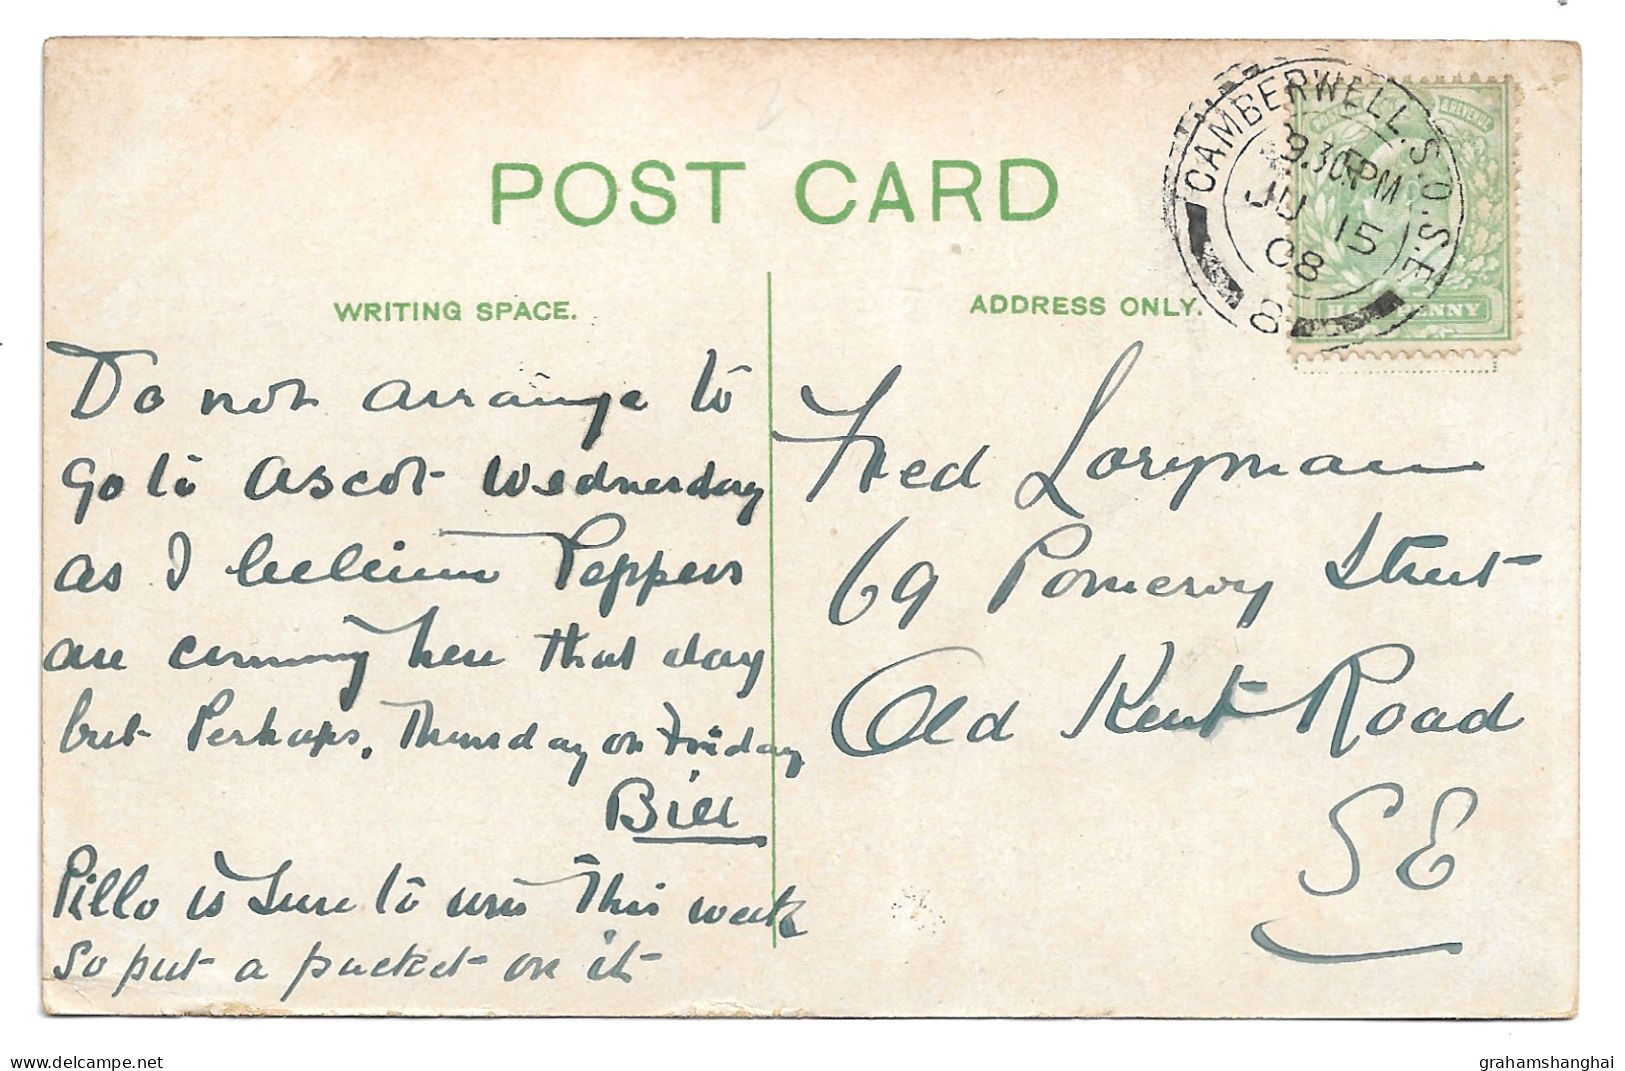 POST CARD
CAMBERWELL.S.O.S.E
9.30PM
JU 15
08
8
HALFPENNY
WRITING SPACE.
ADDRESS ONLY.
Do not arrange to
go to Ascot Wednesday
as I believe Peppers
are coming here that day
but Perhaps. Thursday or Friday
Bill
Pillo is sure to win this week
so put a packet on it
Fred Loryman
69 Pomeroy Street
Old Kent Road
S E
grahamshanghai